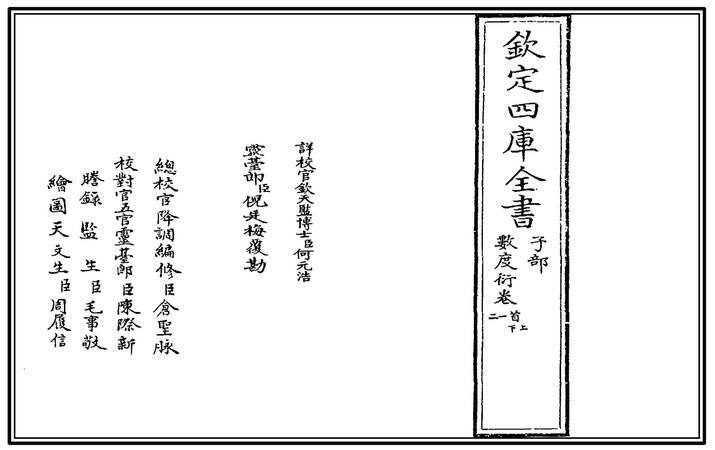 欽定四庫全書
子部
數度衍卷首上
下一二
詳校官欽天監博士臣何元浩
靈臺郎臣倪廷梅覆勘
總校官降調編修臣倉聖脉
校對官五官靈臺郎臣陳際新
謄錄監生臣毛事敬
繪圖天文生臣周履信